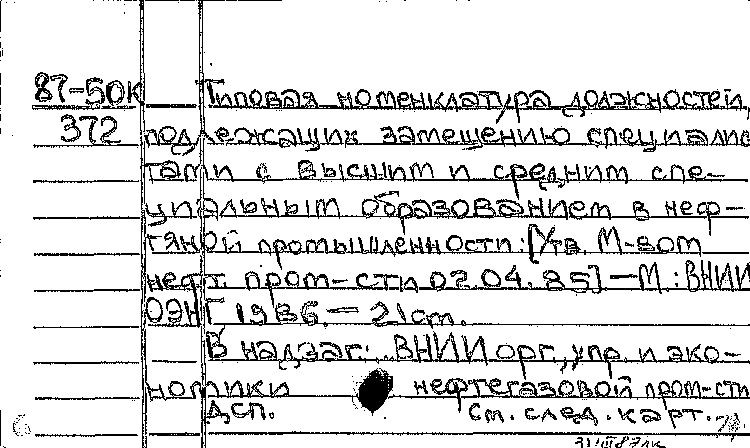 87-50К Типовая номенклатура должностей,
372 подлежащих замещению специалис
тами с высшим и средним спе-
циальным образованием в неф-
тяной промышленности: [Утв. М-вом
нефт. пром-сти 02.04.85] — М.: ВНИИ
ОЭНГ 1986. — 21 ст.
В надзаг.: ВНИИ орг., упр. и эко-
номики нефтегазовой пром-сти
ДСП. См. след. карт.